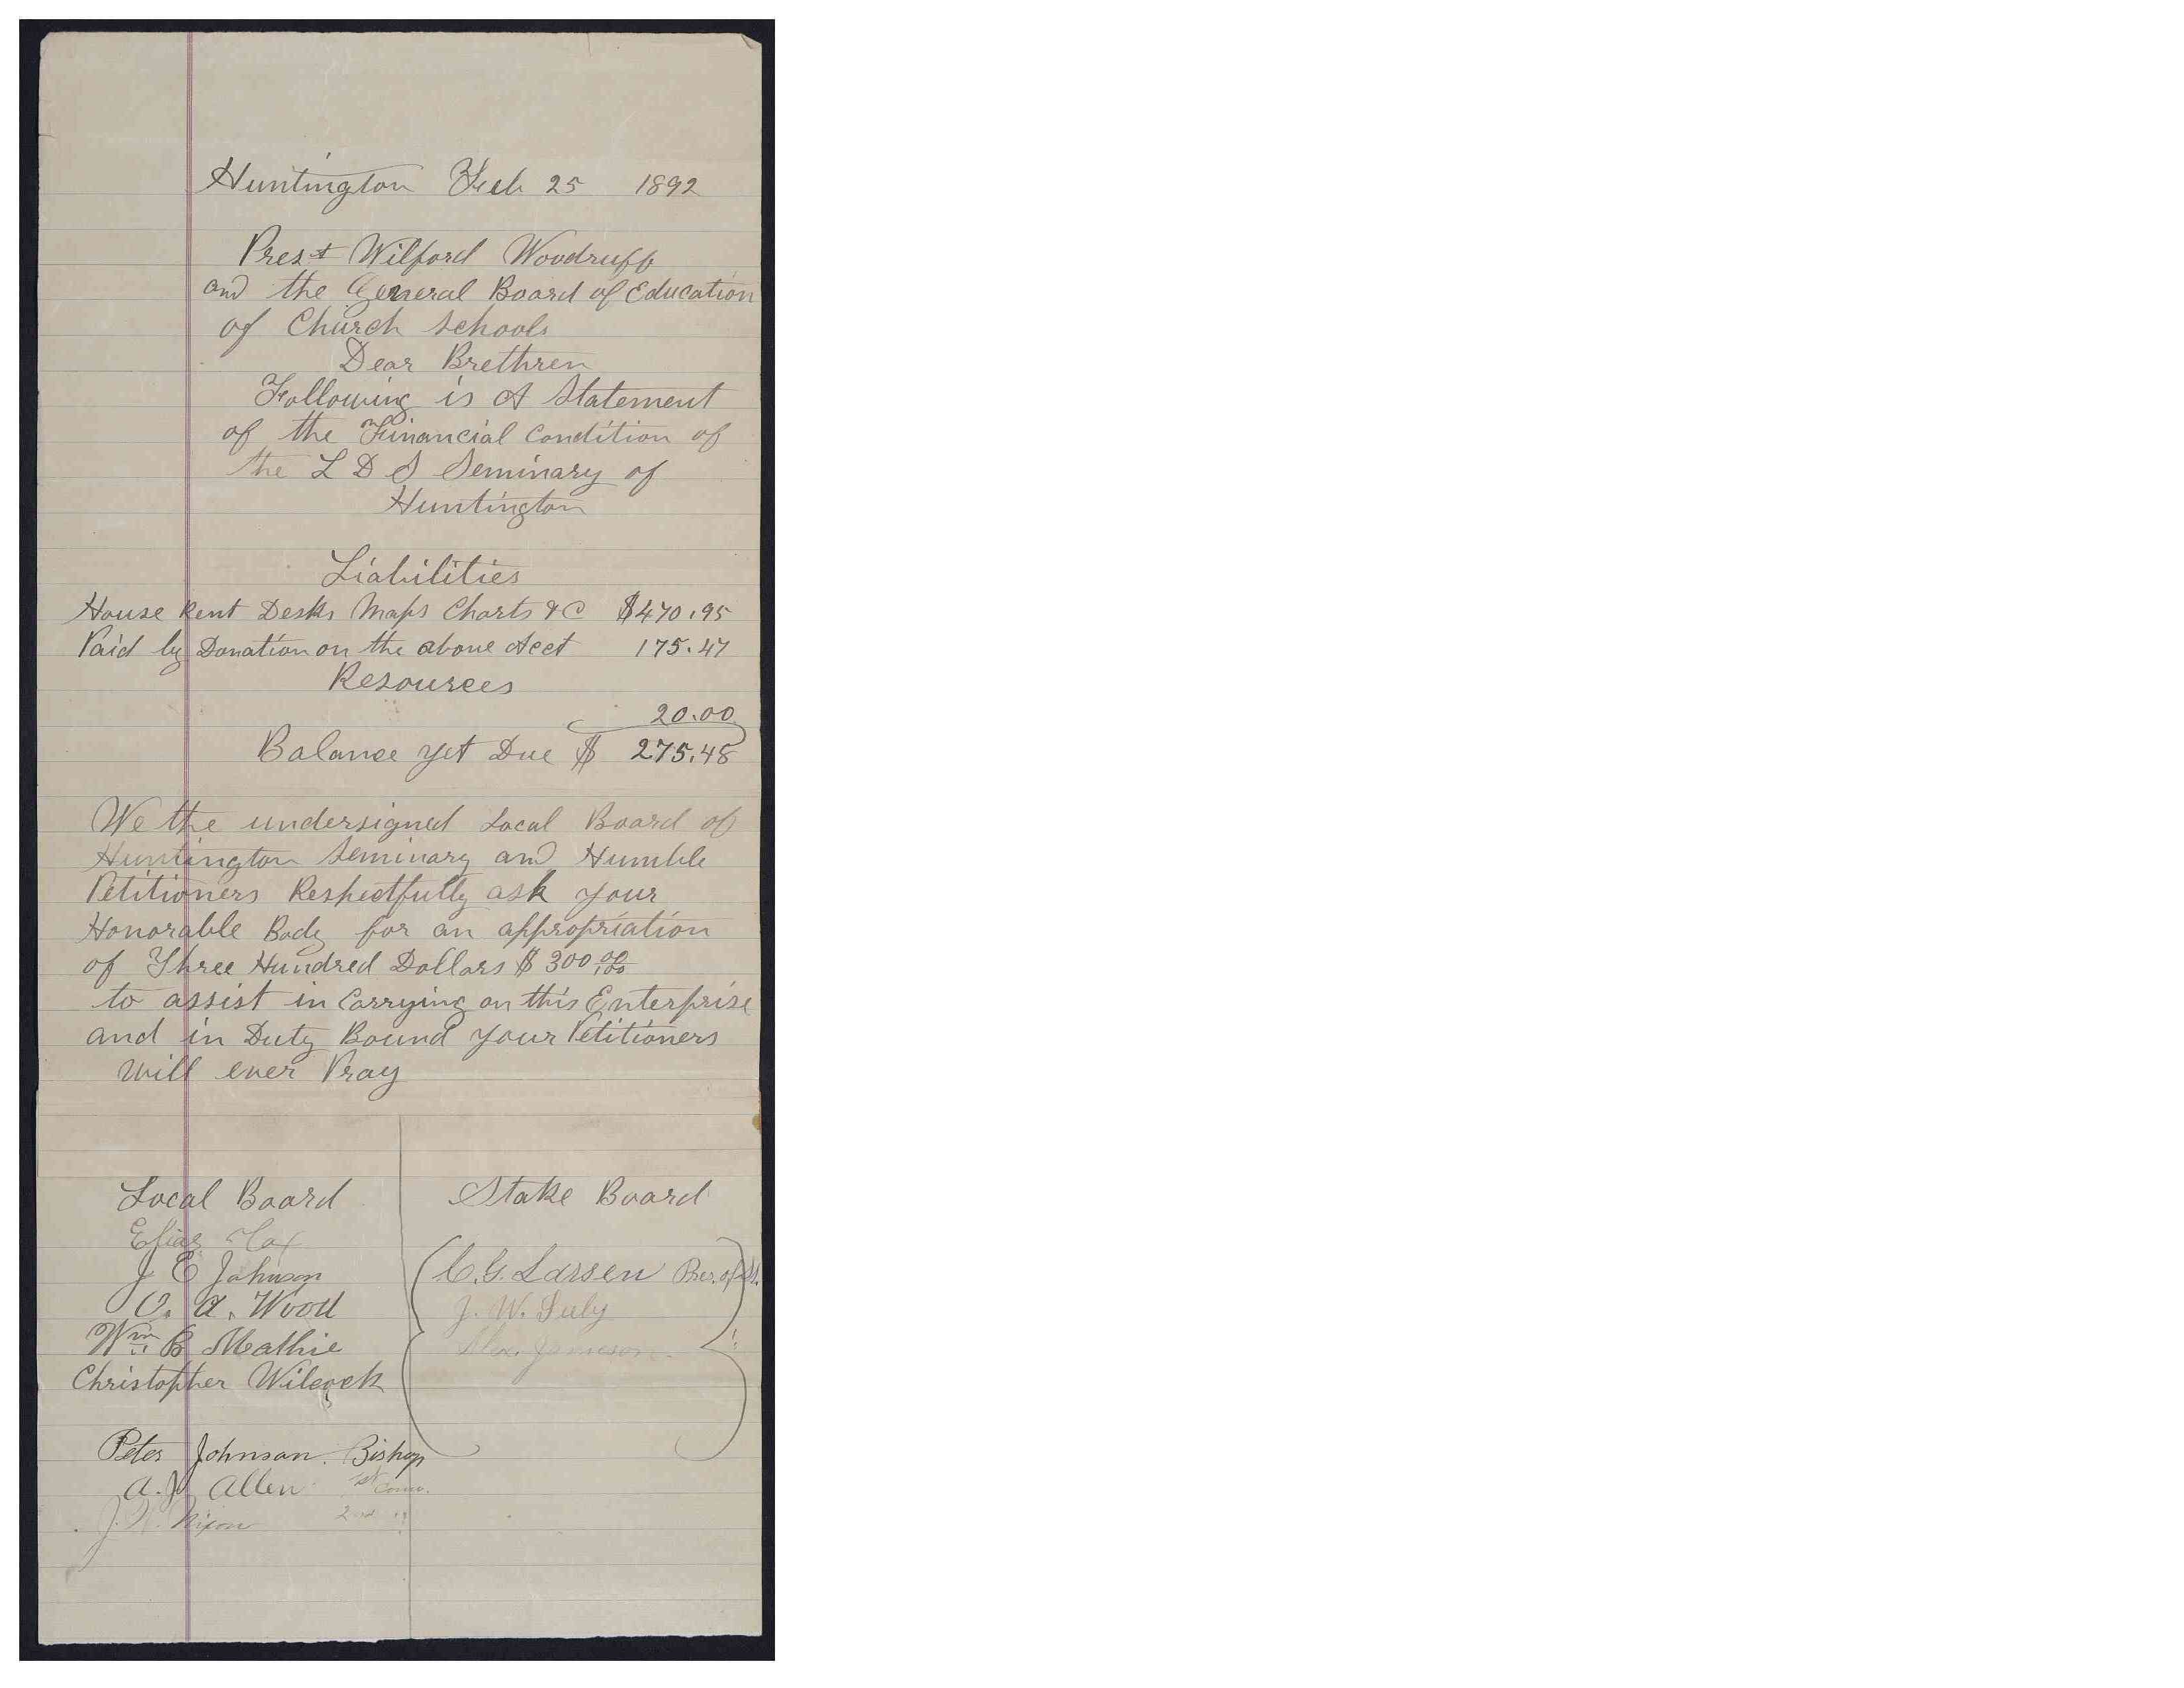 Huntington Feb 25 1892
Prest Wilford Woodruff
and the General Board of Education
of Church Schools
Dear Brethren
Following is A Statement
of the Financial Condition of
the L D S Seminary of
Huntington
Liabilities
House Rent Desks Maps Charts &C $470.95
Paid by Donation on the above Acct 175.47
Resources
20.00
Balance yet Due $ 275.48
We the undersigned Local Board of
Huntington Seminary and Humble
Petitioners Respectfully ask your
Honorable Body for an appropriation
of Three Hundred Dollars $300 00/100
to assist in Carrying on this Enterprise
and in Duty Bound your Petitioners
will ever Pray
Local Board
Elias
J E Johnson
O. A. Wood
Wm B Mathie
Christopher Wilcock
Peter Johnson. Bishop
A. J. Allen 1st Coun.
J. W. Nixon 2nd "
Stake Board
C. G. Larsen Pres. of St.
J. W. Seely
Alex. Jameson